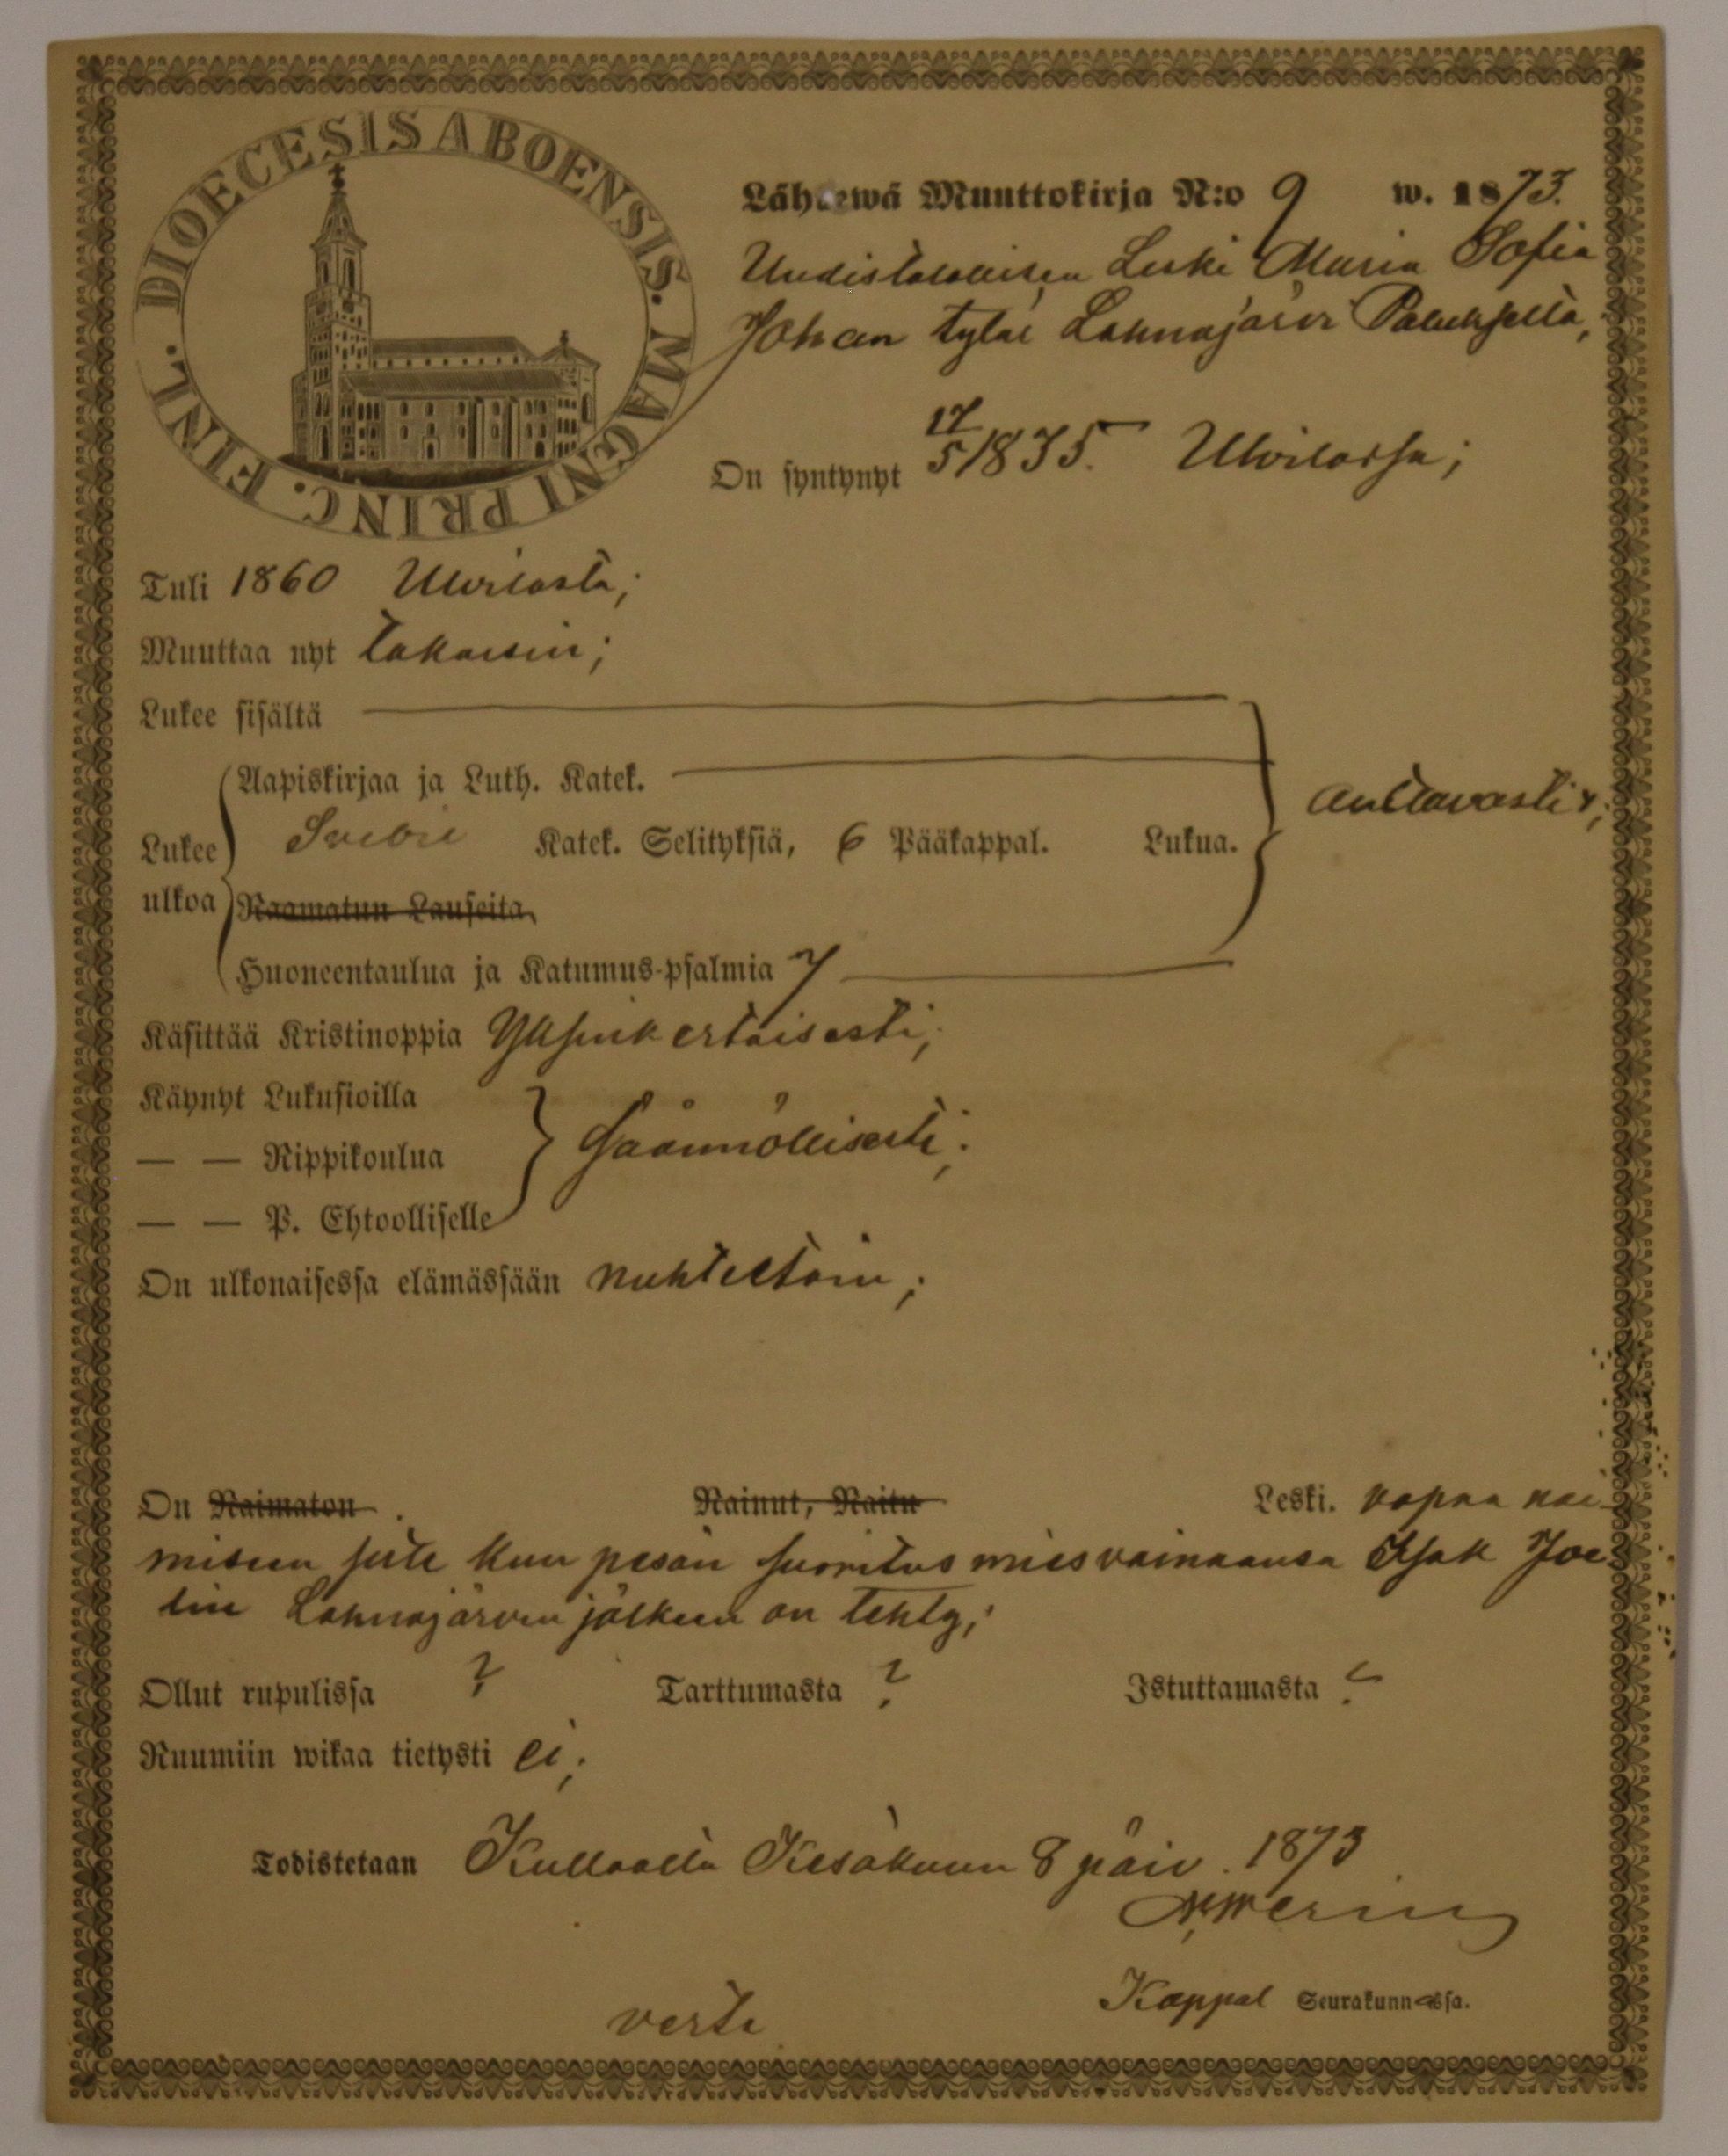 DIOECESIS ABOENSIS. MAGNI PRINC. FINL.
Lähtewä Muuttokirja N:o 9 w. 1873.
Uudistalollisen Leski Maria Sofia
Johan tytär Lahnajärvi Paluksella,
On syntynyt 17/5 1835. Ulvilassa;
Tuli 1860 Ulvilasta;
Muuttaa nyt takaisin;
Lukee sisältä
Aapiskirjaa ja Luth. Katek.
auttavasti;
Lukee ulkoa
Svebil Katek. Selityksiä, 6 Pääkappal. Lukua.
Raamatun Lauseita
Huoneentaulua ja Katumus-psalmia 7
Käsittää Kristinoppia Yksinkertaisesti;
Käynyt Lukusioilla
— — Rippikoulua säännöllisesti;
— — P. Ehtoolliselle
On ulkonaisessa elämässään nuhteetoin;
On Naimaton. Nainut, Naitu Leski. vapaa nai-
miseen sitte kun pesän suoritus miesvainaansa Isak Joe-
lin Lahnajärven jälkeen on tehty;
Ollut rupulissa ? Tarttumasta ? Istuttamasta ?
Ruumiin wikaa tietysti ei;
Todistetaan Kullaalla Kesäkuun 8 päiv. 1873
Kappal Seurakunnassa.